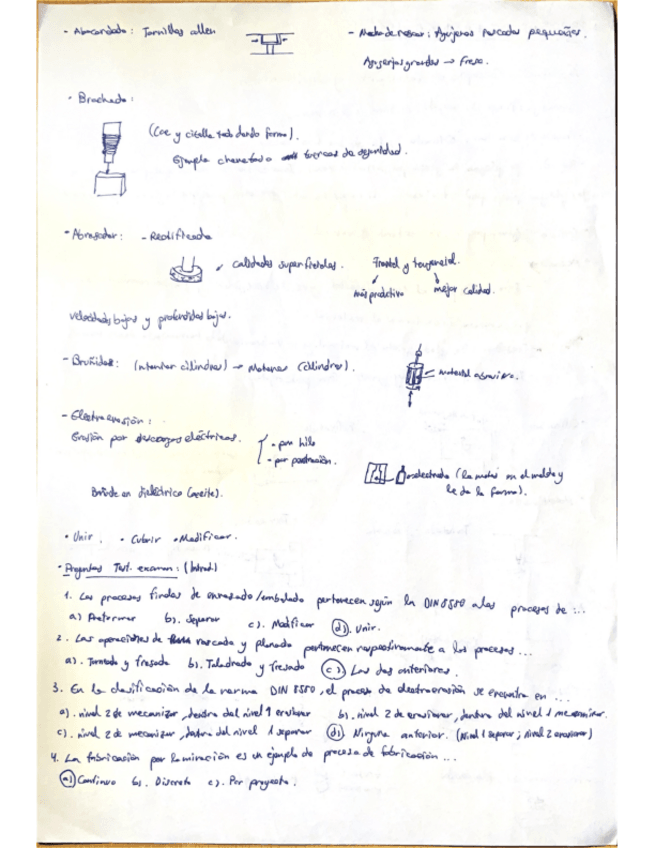 - Abocardado: Tornillos allen
- Macho de roscar: Agujeros roscados pequeños.
Agujeros grandes → fresa.
- Brochado:
(Cae y cizalla todo dando forma).
Ejemplo chavetero tuercas de seguridad.
- Abrasador: - Rectificado
calidades superficiales. Frontal y tangencial.
más productivo mejor calidad.
velocidades bajas y profundidas bajas.
- Bruñidos: (Interior cilindros) → Motores (cilindros).
material abrasivo.
- Electroerosión:
Erosión por descargas eléctricas.
• por hilo
• por penetración.
electrodo (la metes en el molde y
le da la forma).
en dieléctrico (aceite).
• Unir. • Cubrir • Modificar.
• Preguntas Test. examen: (Introd.)
1. Los procesos de enroscado/embolado pertenecen según la DIN 8580 a los procesos de ...
a) Preformar b). Separar c). Modificar d). Unir.
2. Las operaciones de roscado y planeado pertenecen respectivamente a los procesos...
a). Torneado y fresado b). Taladrado y fresado c). Las dos anteriores.
3. En la clasificación de la norma DIN 8580, el proceso de electroerosión se encuentra en ...
a). nivel 2 de mecanizar, dentro del nivel 1 erosionar b). nivel 2 de erosionar, dentro del nivel 1 mecanizar.
c). nivel 2 de mecanizar, dentro del nivel 1 separar d). Ninguna anterior. (Nivel 1 separar; nivel 2 erosionar)
4. La fabricación por laminación es un ejemplo de proceso de fabricación ...
a) Continuo b). Discreto c). Por proyecto.